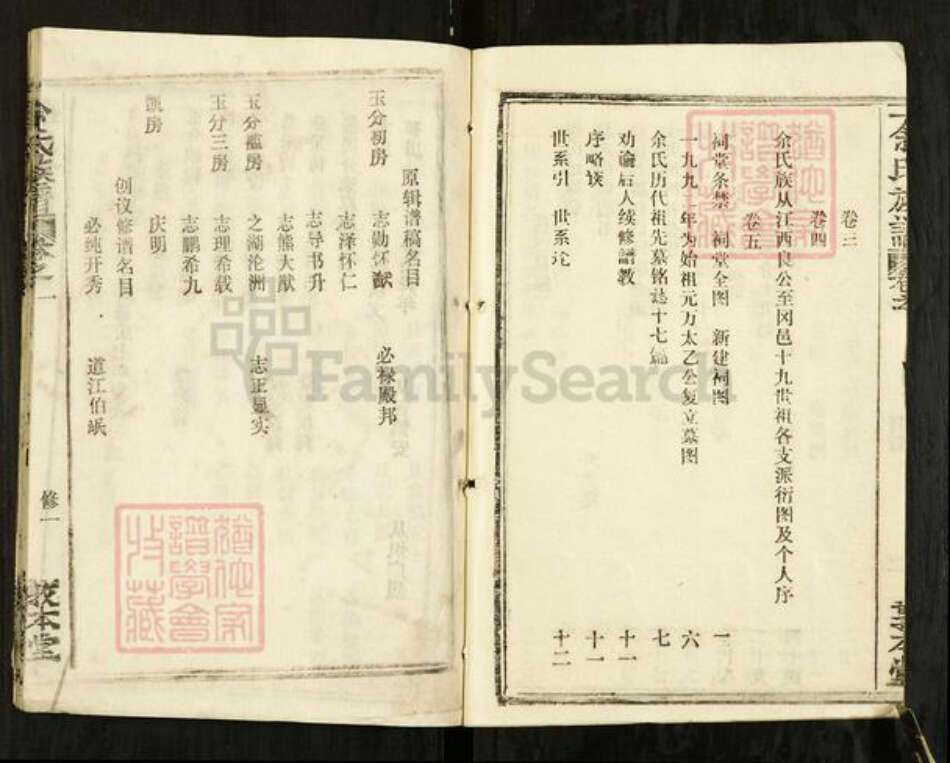 卷三
卷四
余氏族从江西良公至冈邑十九世祖各支派衍图及个人序
卷五
祠堂条禁 祠堂全图 新建祠图 一
一九九 年为始祖元方太乙公复立墓图 六
余氏历代祖先墓铭志十七篇 七
劝谕后人续修譜教 十一
序略谈 十一
世系引 世系论 十二
原辑谱稿名目
玉分初房 志勋怀猷 必禄殿邦
志泽怀仁
志导书升
志熊大猷
玉分 房 之湖沦洲 志正显实
玉分三房 志理希载
志鹏希九
房 庆明
创议修谱名目
必纯开秀 道江伯岷
余氏族譜 卷之一
修一
敦本堂
猶他家譜學會收藏
FamilySearch